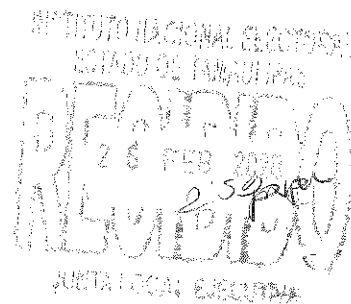 INSTITUTO NACIONAL ELECTORAL
ESTADO DE TAMAULIPAS
RECIBIDO
26 FEB 2020
JUNTA LOCAL EJECUTIVA